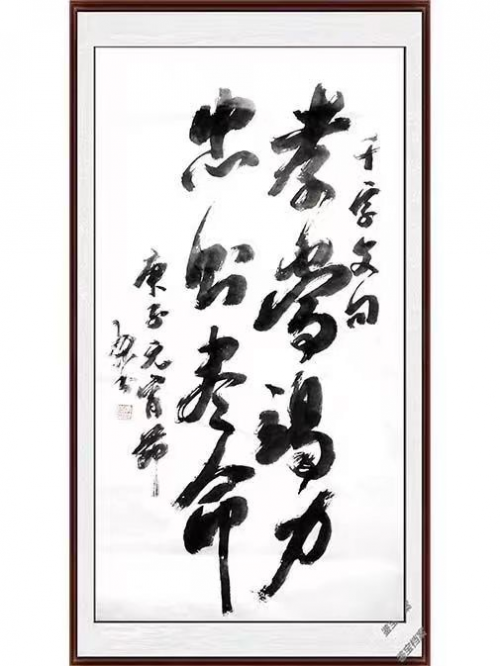 千字文句
孝當竭力
忠則盡命
庚子元宵節